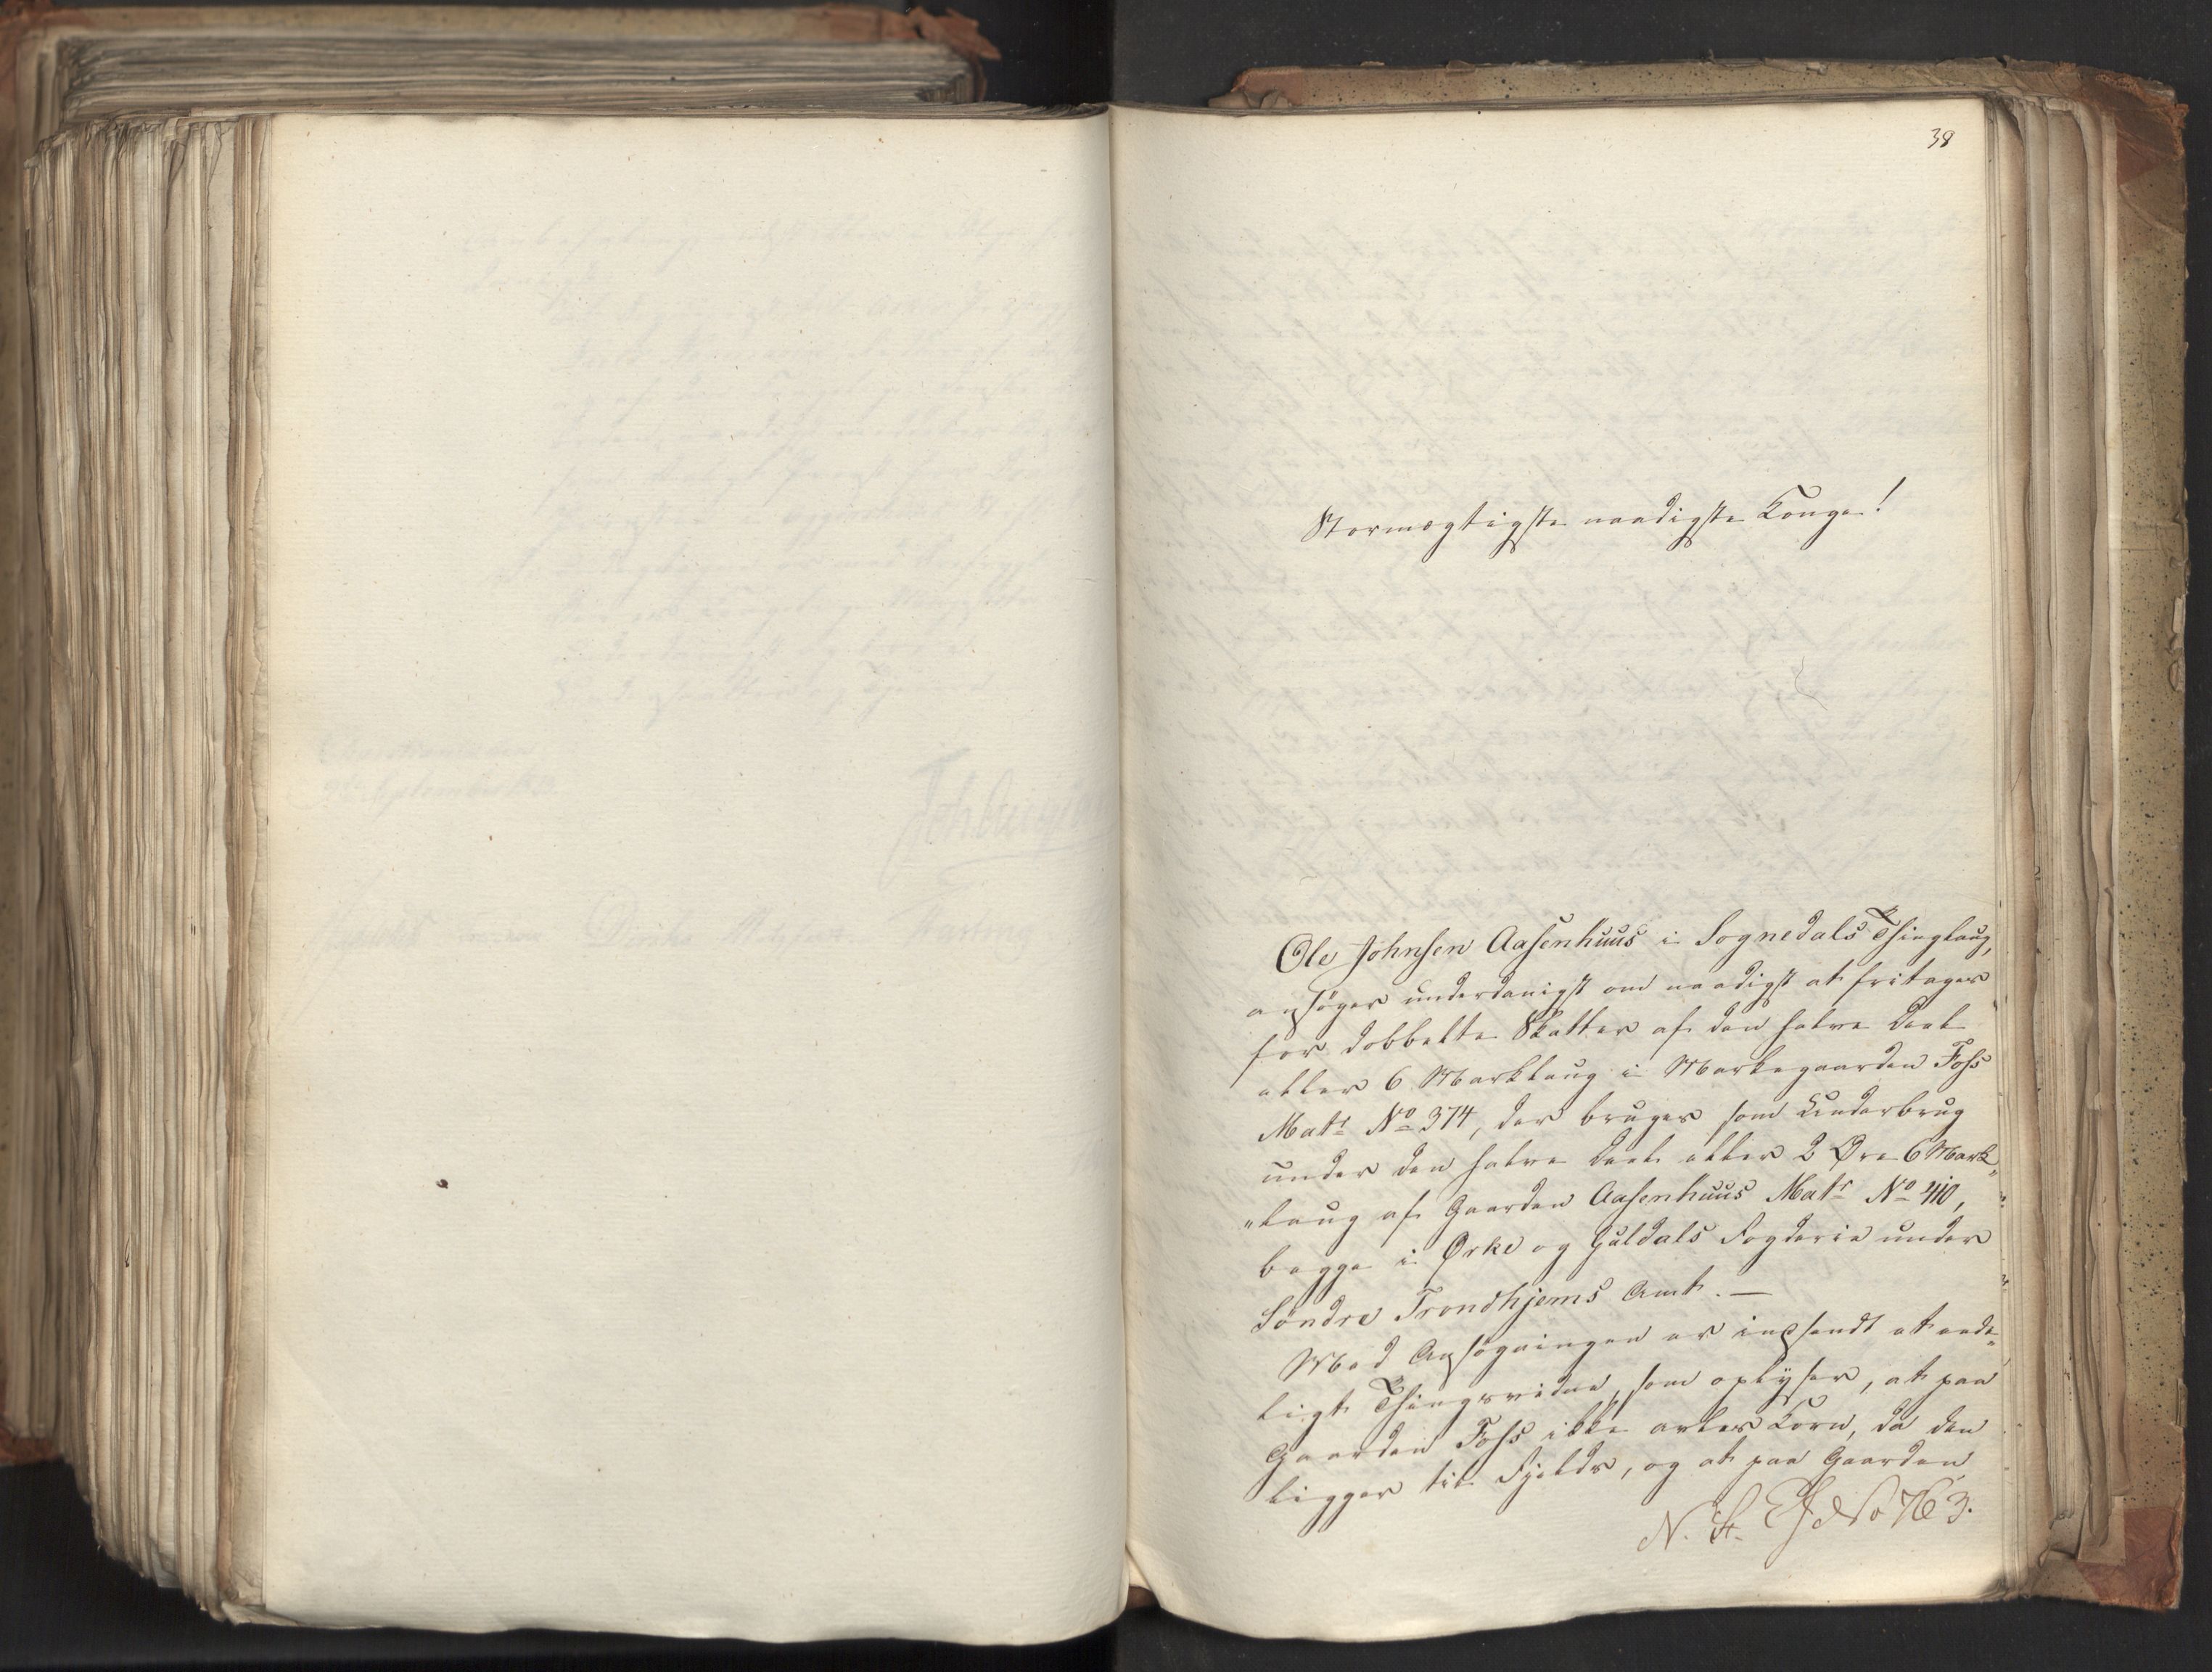 38
Stormægtigste naadigste Konge!
Ole Johnsen Aasenhuus i Sognedals Thinglaug,
ansøger underdanigst om naadigst at fritages
for dobbelte Skatter af den halve Deel
eller 6 Marklaug i Markegaarden Foss
Matr No 374, der bruges som Underbrug
under den halve Deel eller 2 Øre 6 Mark„
„laug af Gaarden Aasenhuus Matr No 410,
begge i Ørke og Guldals Fogderie under
Søndre Trondhjems Amt. —
Med Ansøgningen er indsendt et eede„
ligt Thingsvidne, som oplyser, at paa
Gaarden Foss ikke avles Korn, da den
ligger til Fjelds, og at paa Gaarden
N. St. No 763.